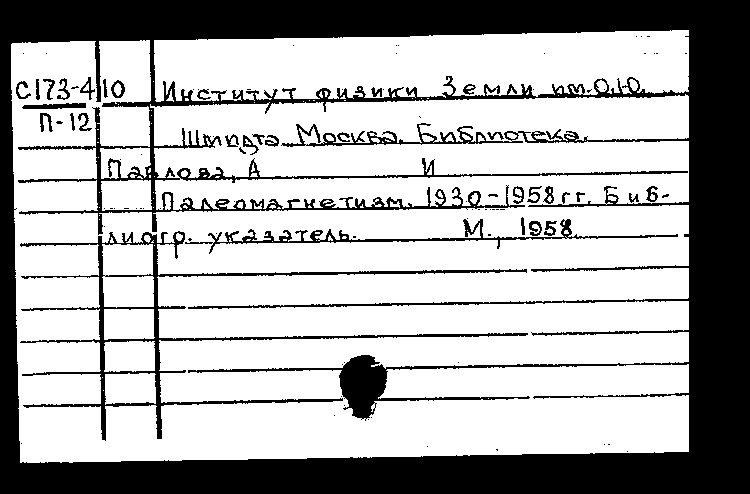 С173-4 10 Институт физики Земли им. О.Ю.
П-12
Шмидта. Москва. Библиотека.
Павлова, А И
Палеомагнетизм. 1930-1958 гг. Биб-
лиогр. указатель. М., 1958